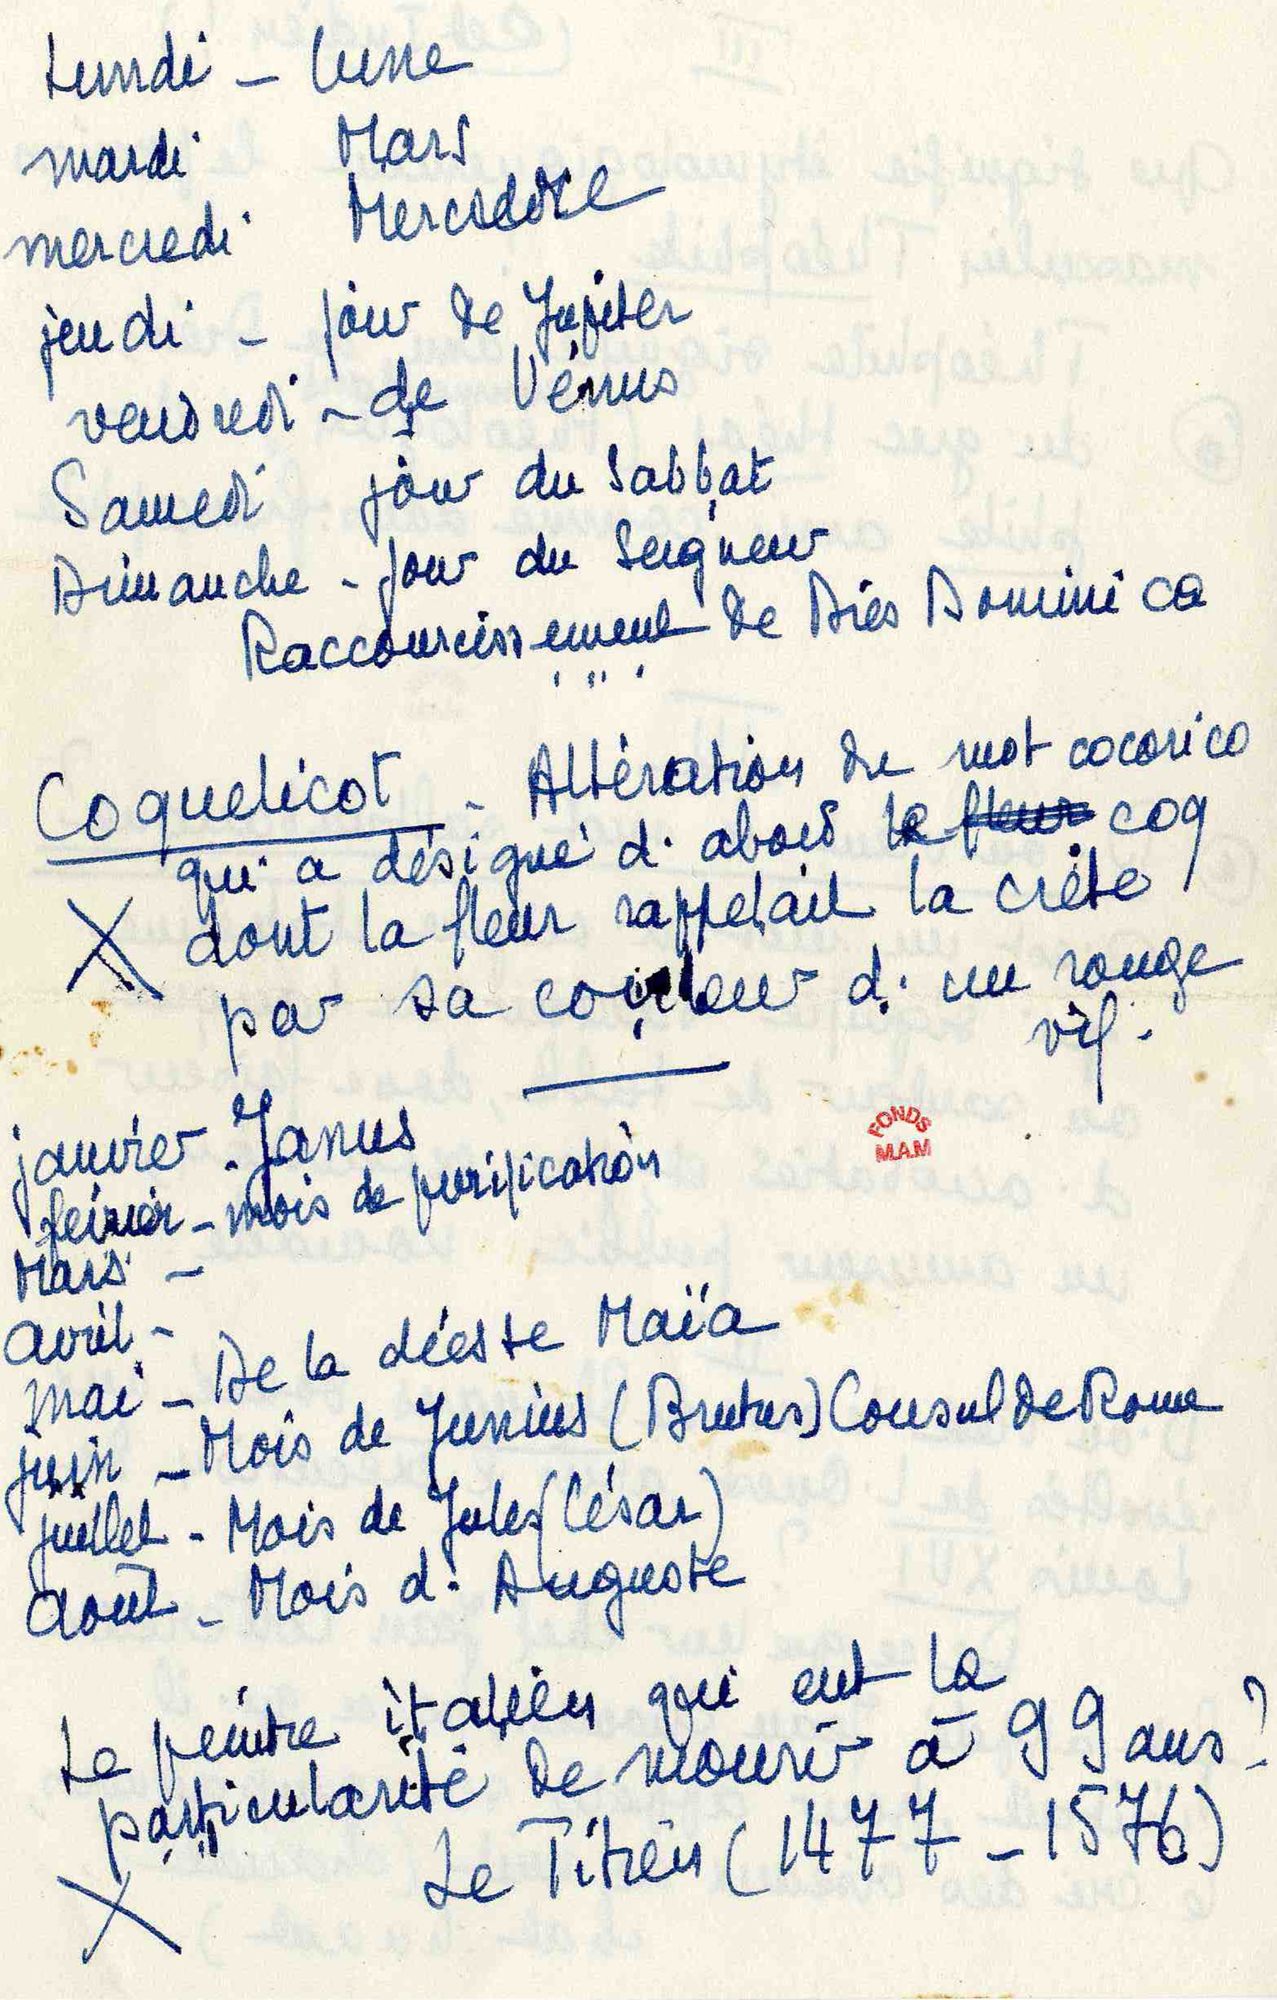 Lundi - lune
mardi Mars
mercredi Mercredi
jeudi - jour de Jupiter
vendredi - de Vénus
Samedi jour du Sabbat
Dimanche - jour du Seigneur
Raccourcissement de Diés Dominica
Coquelicot - Altération du mot cocorico
qui a désigné d'abord le fleur coq
dont la fleur rappelait la crête
par sa couleur d'un rouge
vif.
janvier. Janus
février - mois de purification
Mars -
avril -
mai - De la déesse Maïa
juin - Mois de Junius (Brutus) Consul de Rome
juillet - Mois de Jules (César)
août - Mois d'Auguste
FONDS
M.A.M
Le peintre italien qui eut la
particularité de mourir à 99 ans?
Le Titien (1477 - 1576)